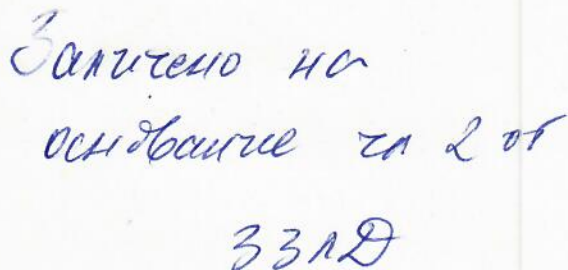 Заличено на
основание чл 2 от
ЗЗЛД